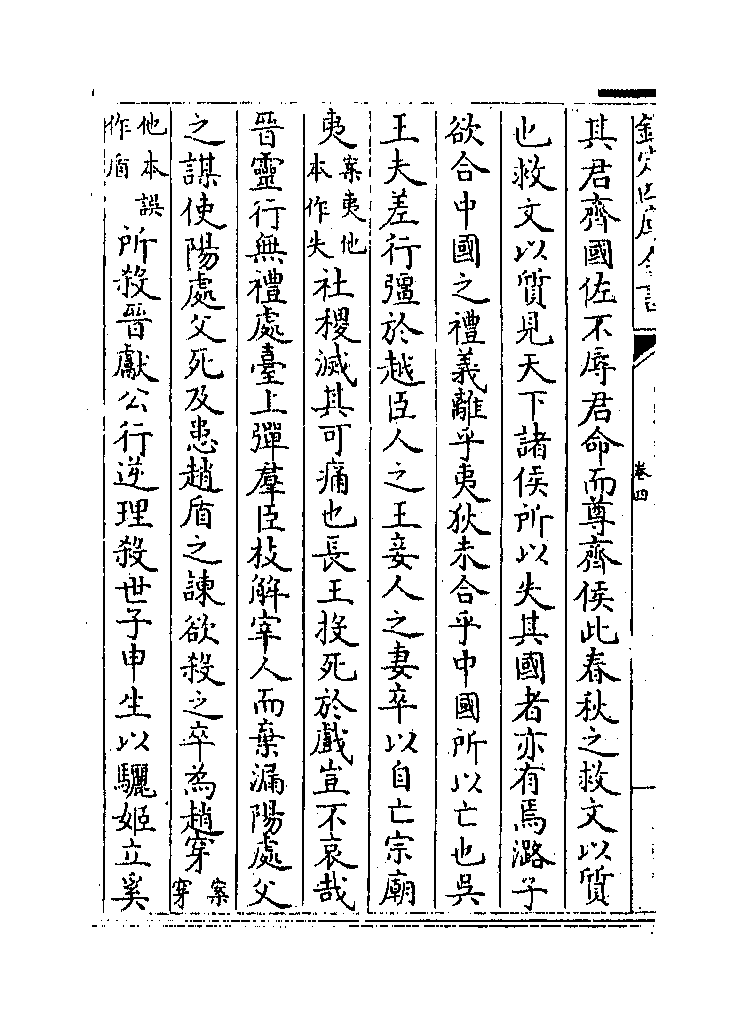 欽定四庫全書
卷四
其君齊國佐不辱君命而尊齊侯此春秋之救文以質
也救文以質見天下諸侯所以失其國者亦有焉潞子
欲合中國之禮義離乎夷狄未合乎中國所以亡也吳
王夫差行彊於越臣人之王妾人之妻卒以自亡宗廟
夷案夷他本作失社稷滅其可痛也長王投死於戲豈不哀哉
晉靈行無禮處臺上彈羣臣枝解宰人而棄漏陽處父
之謀使陽處父死及患趙盾之諫欲殺之卒為趙穿案穿
他本誤作盾所殺晉獻公行逆理殺世子申生以驪姬立奚